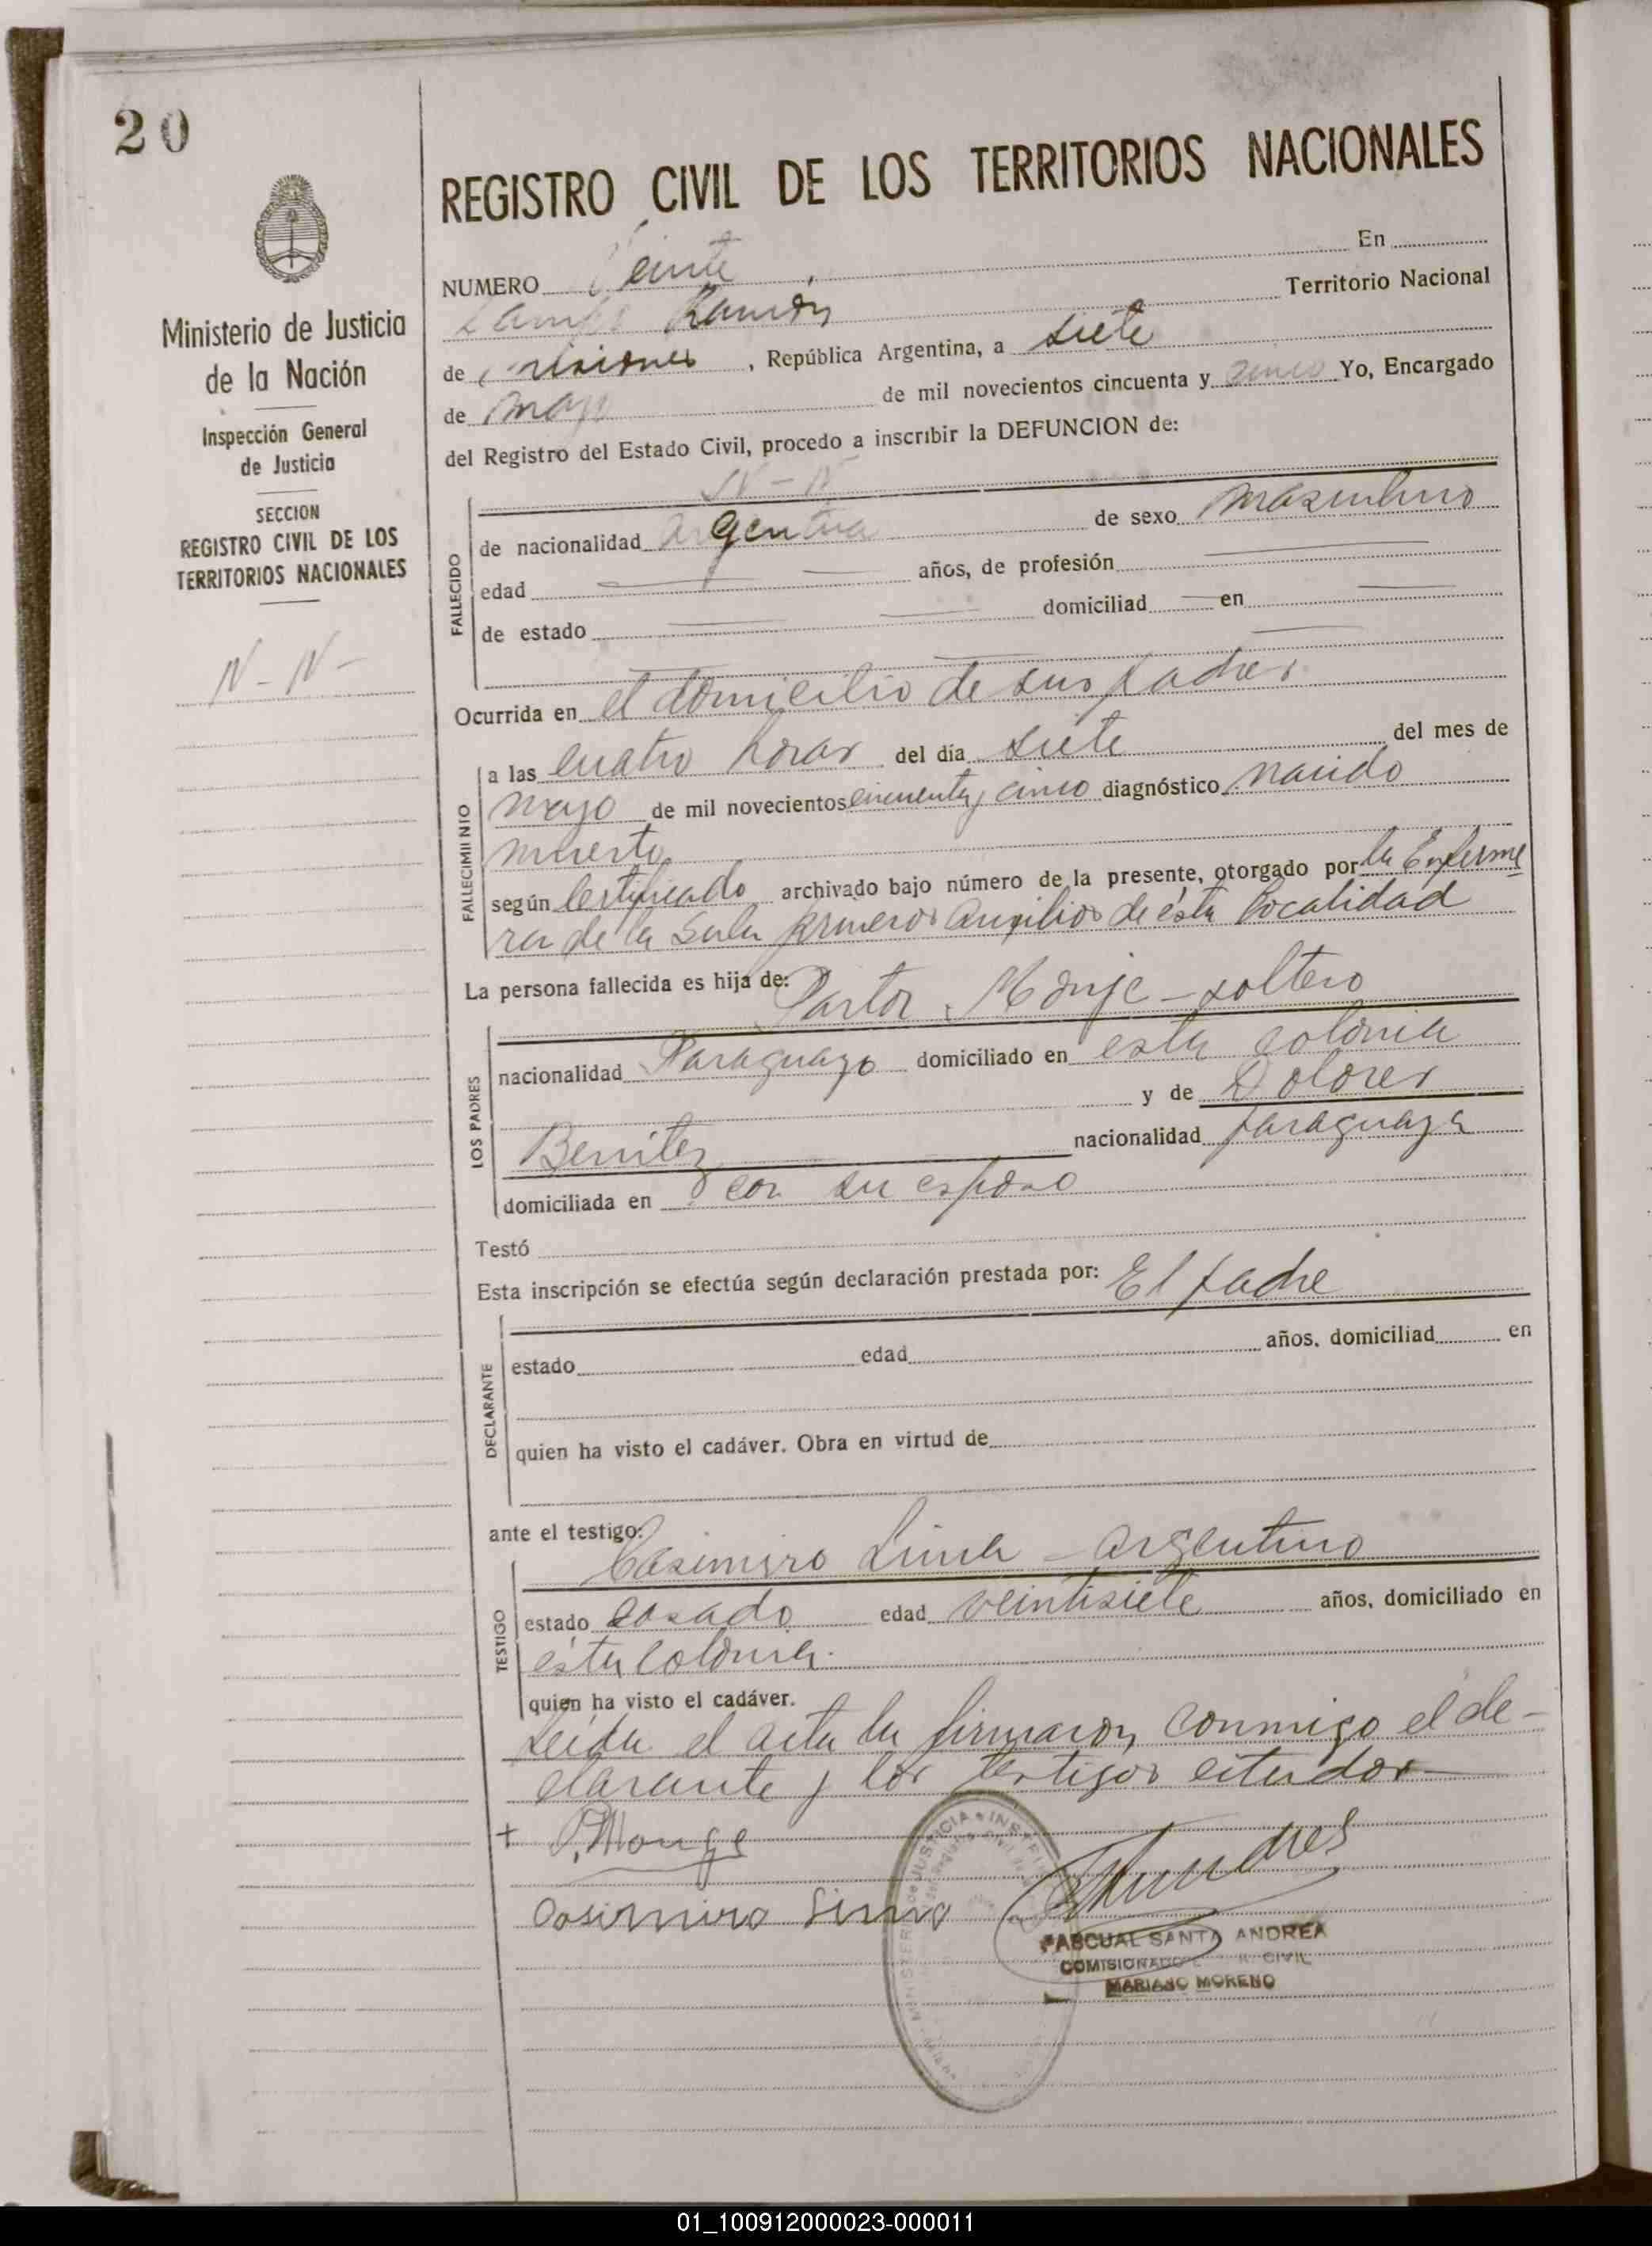 20
REGISTRO CIVIL DE LOS TERRITORIOS NACIONALES
Ministerio de Justicia
de la Nación
Inspección General
de Justicia
SECCION
REGISTRO CIVIL DE LOS
TERRITORIOS NACIONALES
N - N -
NUMERO Veinte, En
Campo Ramón Territorio Nacional
de Misiones, República Argentina, a siete
de Mayo de mil novecientos cincuenta y cinco Yo, Encargado
del Registro del Estado Civil, procedo a inscribir la DEFUNCION de:
N - N
FALLECIDO
de nacionalidad argentina de sexo masculino
edad años, de profesión
de estado domiciliad en
Ocurrida en el domicilio de sus padres
FALLECIMIINIO
a las cuatro horas del día siete del mes de
mayo de mil novecientos cincuenta y cinco diagnóstico nacido
muerto
según certificado archivado bajo número de la presente, otorgado por la Enferme
ra de la Sala primeros auxilios de ésta localidad
La persona fallecida es hija de: Pastor Monje - soltero
LOS PADRES
nacionalidad Paraguayo domiciliado en esta colonia
y de Dolores
Benitez nacionalidad paraguaya
domiciliada en con su esposo
Testó
Esta inscripción se efectúa según declaración prestada por: El padre
DECLARANTE
estado edad años, domiciliad en
quien ha visto el cadáver. Obra en virtud de
ante el testigo:
Casimiro Lima - argentino
TESTIGO
estado casado edad veintisiete años, domiciliado en
ésta colonia.
quien ha visto el cadáver.
Leida el acta la firmaron conmigo el de-
clarante y los testigos citados
+ P. Monge
Casimiro Lima
PASCUAL SANTA ANDREA
COMISIONADO CIVIL
MARIANO MORENO
01_100912000023-000011